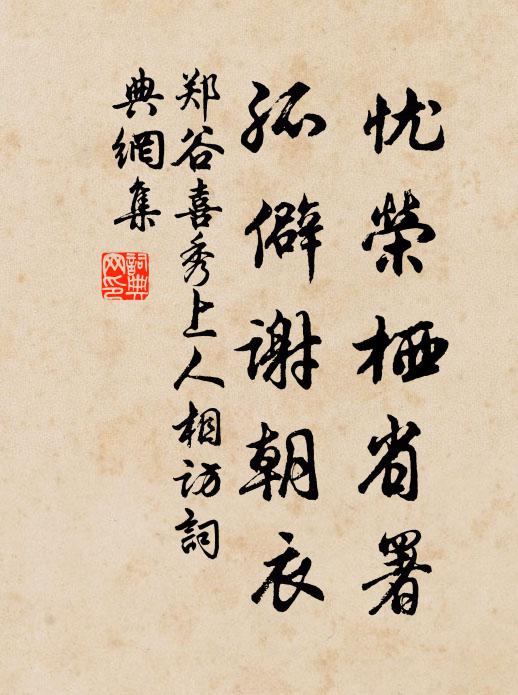 忧榮栖省署
孤僻谢朝衣
郑谷喜秀上人相访詞
典網集
詞典
网印